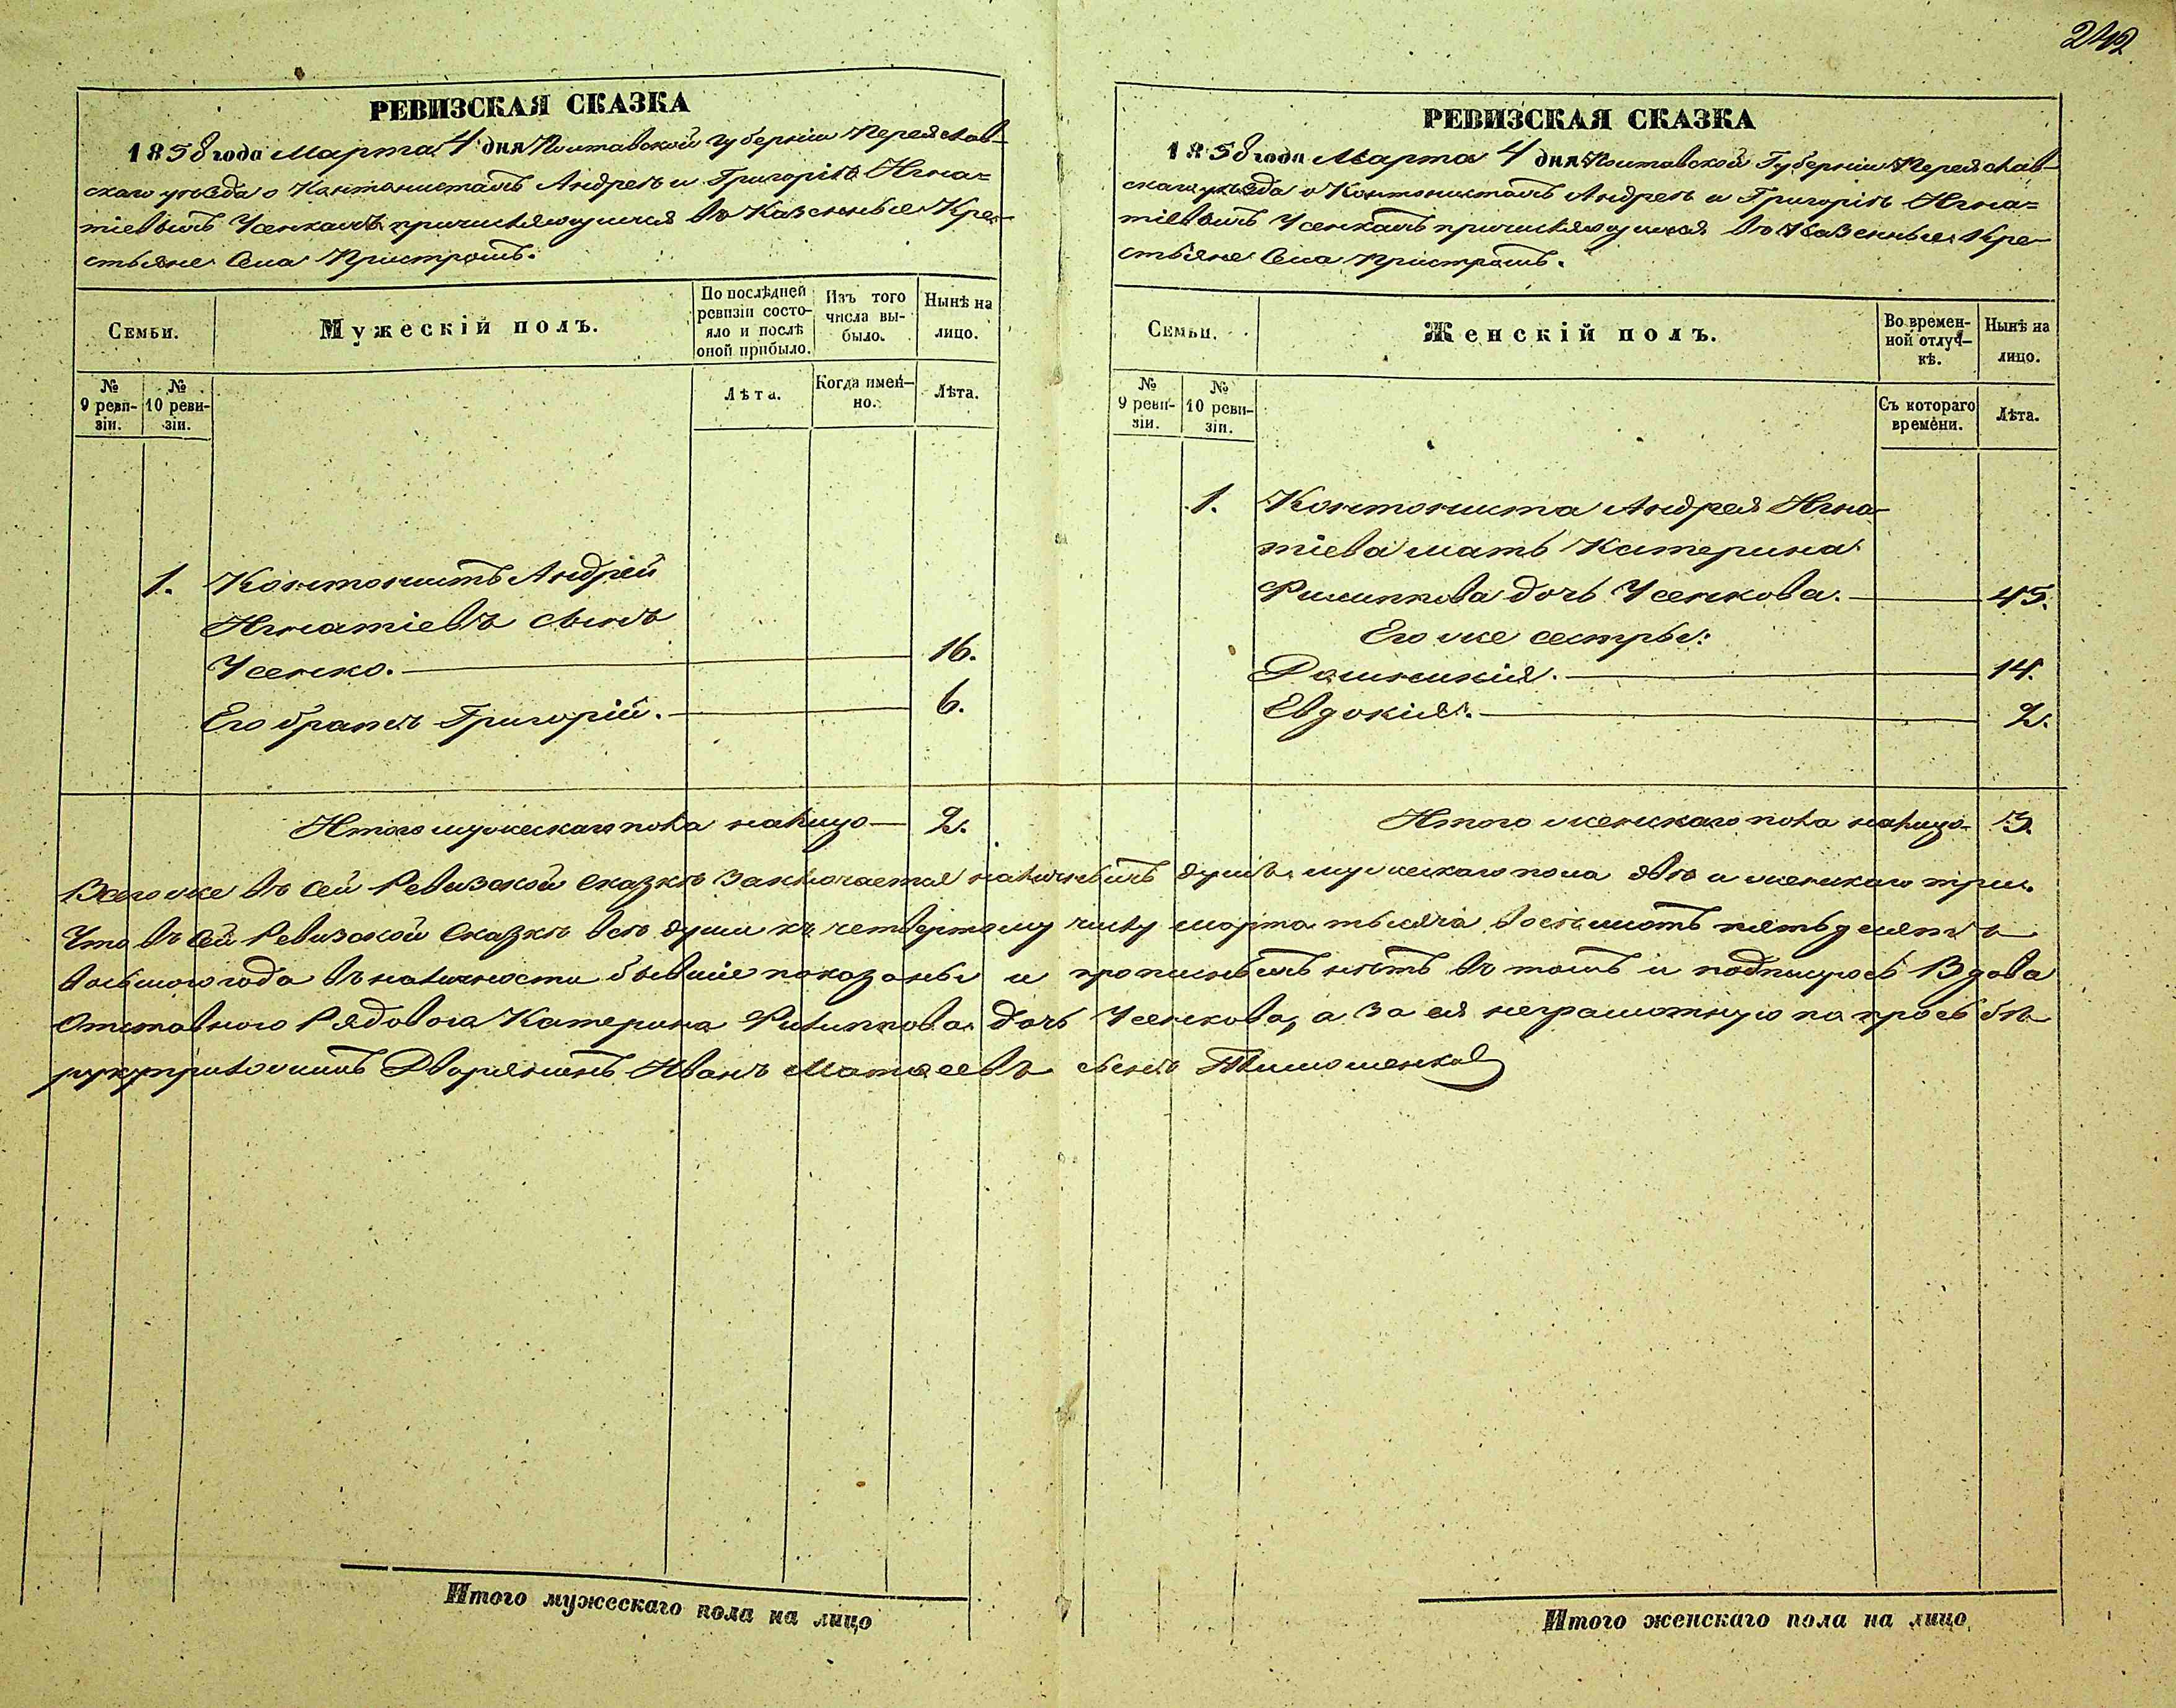 242
РЕВИЗСКАЯ СКАЗКА
1858 года Марта 4 дня Полтавской губерніи Переяслав-
скаго уѣзда о Кантонистахъ Андреѣ и Григоріѣ Игна=
тіевыхъ Усенкахъ причисляющихся въ Казенные Кре-
стьяне Села Пристромъ.
Семьи.
Мужескій полъ.
По послѣдней
ревизіи состо-
яло и послѣ
оной прибыло.
Изъ того
числа вы-
было.
Нынѣ на
лицо.
№
9 реви-
зіи.
№
10 реви-
зіи.
Лѣта.
Когда имен-
но.
Лѣта.
1. Контонистъ Андрій
Игнатіевъ сынъ
Усенко. 16.
Его братъ Григорій. 6.
Итого мужескаго пола налицо 2.
РЕВИЗСКАЯ СКАЗКА
1858 года Марта 4 дня Полтавской Губерніи Переяслав-
скаго уѣзда о Контонистахъ Андреѣ и Григоріѣ Игна=
тіевыхъ Усенкахъ причисляющихся въ Казенные Кре-
стьяне Села Пристромъ.
Семьи.
Женскій полъ.
Во времен-
ной отлуч-
кѣ.
Нынѣ на
лицо.
№
9 реви-
зіи.
№
10 реви-
зіи.
Съ котораго
времени.
Лѣта.
1. Контониста Андрея Игна-
тіева мать Катерина
Филиппова дочь Усенкова. 45.
Его же сестры:
Домникія. 14.
Евдокия. 2.
Итого женскаго пола налицо 3.
Всего же въ сей Ревизской сказкѣ заключается наличныхъ душъ мужескаго пола двѣ и женскаго три.
Что въ сей Ревизской Сказкѣ всѣ души къ четвертому числу марта тысяча восемьсотъ пятьдесятъ
восьмого года въ наличности бывшіе показаны и прописныхъ нѣтъ въ томъ и подписуюсь Вдова
Отставного Рядового Катерина Филиппова дочь Усенкова, а за ея неграмотную по просьбѣ
руку приложилъ Дворянинъ Иванъ Матвеевъ сынъ Тимошенков
Итого мужескаго пола на лицо
Итого женскаго пола на лицо